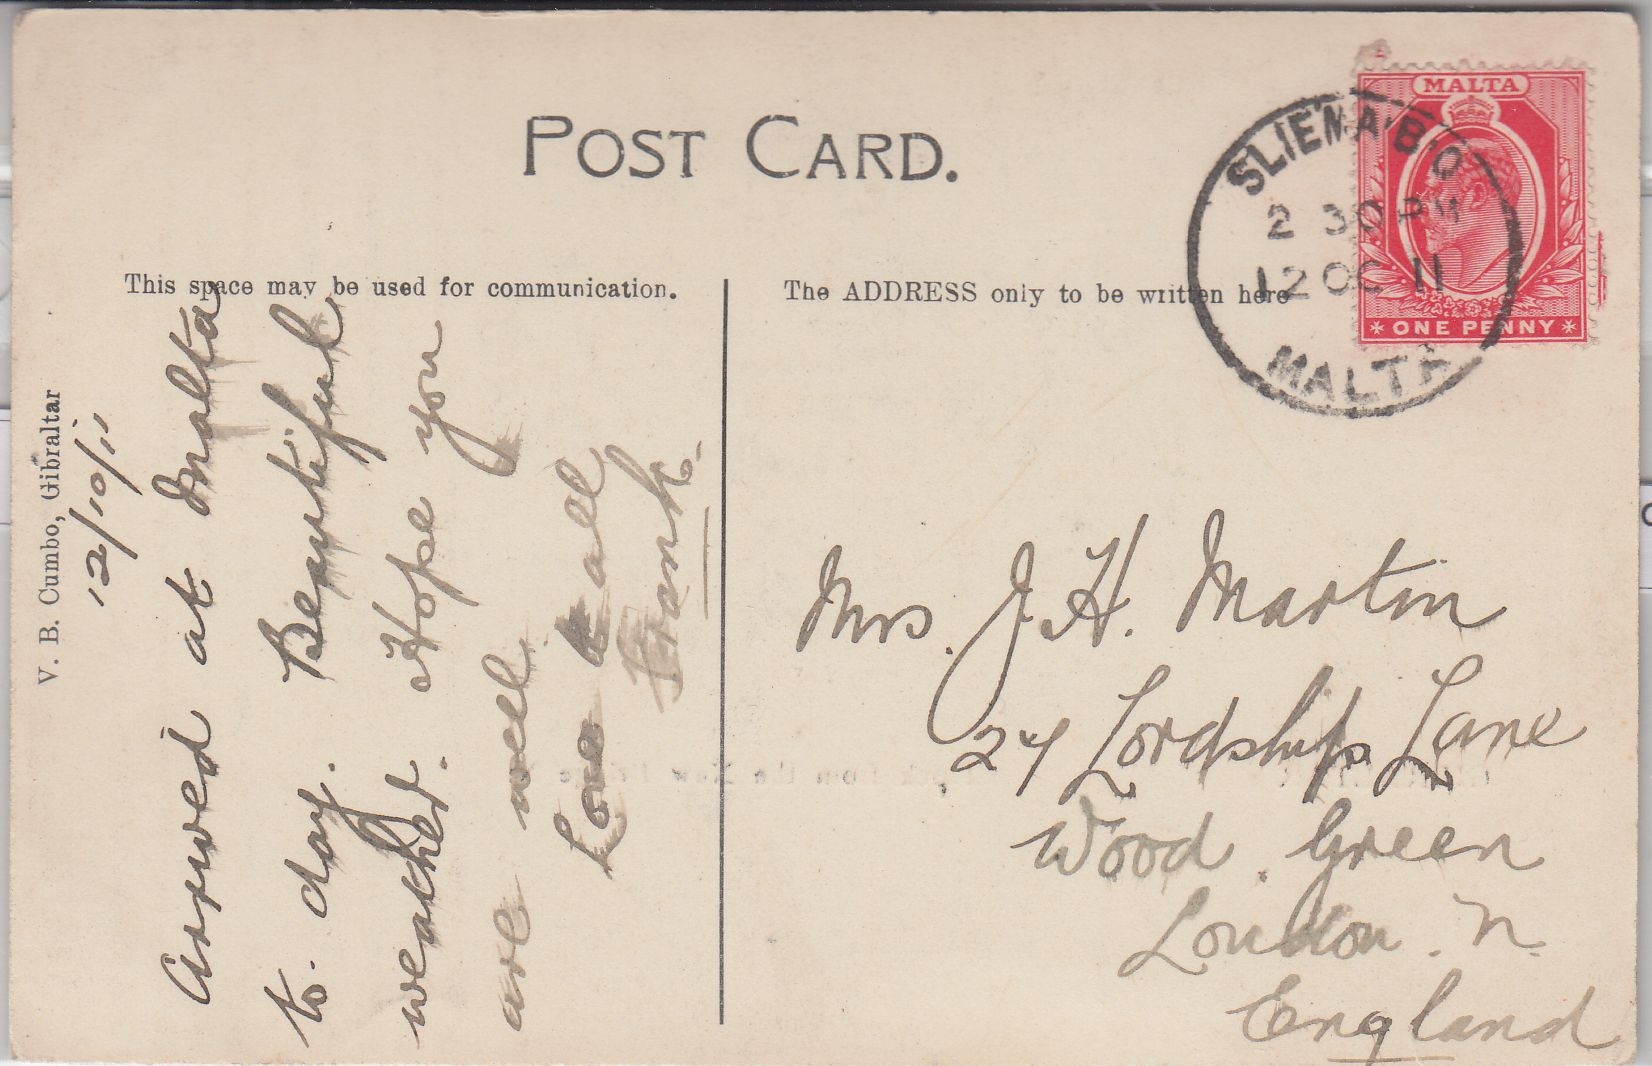 POST CARD.
This space may be used for communication.
The ADDRESS only to be written here
V. B. Cumbo, Gibraltar
12/10/11
Arrived at Malta
to. day. Beautiful
weather. Hope you
are well.
Love to all
Frank.
MALTA
ONE PENNY
SLIEMA B.O
2 30 PM
12 OC 11
MALTA
Mrs. J. H. Martin
27 Lordship Lane
Wood. Green
London. N.
England